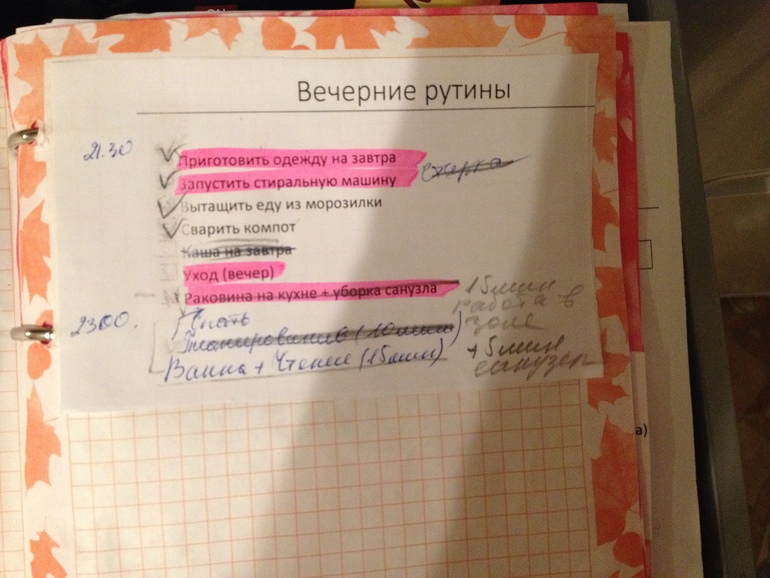 Вечерние рутины
21.30
Приготовить одежду на завтра
Запустить стиральную машину
Стирка
Вытащить еду из морозилки
Сварить компот
Каша на завтра
Уход (вечер)
Раковина на кухне + уборка санузла
15 мин
работа в
зоне
23.00.
Спать
Планирование (10 мин)
Ванна + Чтение (15 мин)
+ 5 мин
санузел
а)